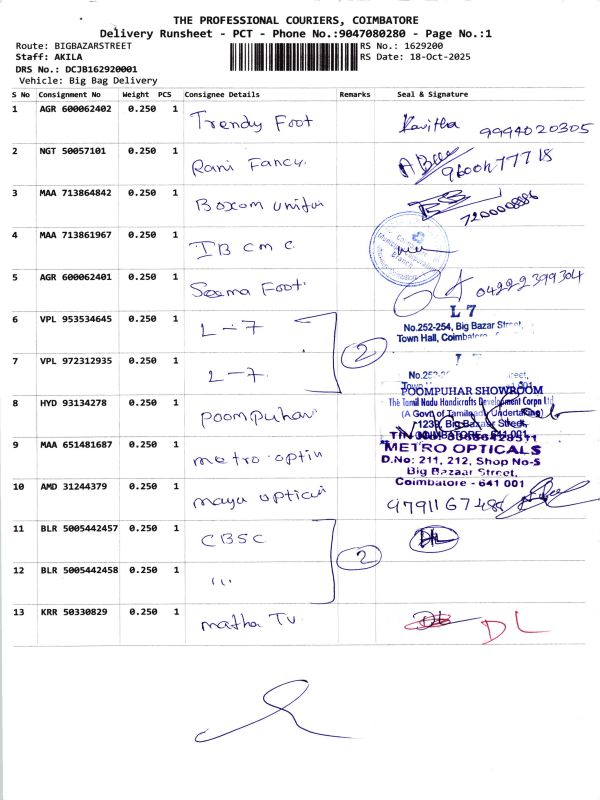 THE PROFESSIONAL COURIERS, COIMBATORE
Delivery Runsheet - PCT - Phone No.:9047080280 - Page No.:1
Route: BIGBAZARSTREET
RS No.: 1629200
Staff: AKILA
RS Date: 18-Oct-2025
DRS No.: DCJB162920001
Vehicle: Big Bag Delivery
S No Consignment No Weight PCS Consignee Details Remarks Seal & Signature
1 AGR 600062402 0.250 1 Trendy Foot Kavitha 9994020305
2 NGT 50057101 0.250 1 Rani Fancy.
3 MAA 713864842 0.250 1 Boxom 7200008886
4 MAA 713861967 0.250 1 IB cm c
5 AGR 600062401 0.250 1 Seema Foot. 04222399304
6 VPL 953534645 0.250 1 L-7 2
L 7
No.252-254, Big Bazar Street,
Town Hall, Coimbatore
7 VPL 972312935 0.250 1 L-7.
8 HYD 93134278 0.250 1 Poompuhar
POOMPUHAR SHOWROOM
The Tamil Nadu Handicrafts Development Corpn Ltd
(A Govt of Tamilnadu Undertaking)
Big Bazaar Street,
COIMBATORE - 641 001
9 MAA 651481687 0.250 1 metro
METRO OPTICALS
D.No: 211, 212, Shop No-5
Big Bazaar Street,
Coimbatore - 641 001
10 AMD 31244379 0.250 1 maya
11 BLR 5005442457 0.250 1 CBSC 2
12 BLR 5005442458 0.250 1 "
13 KRR 50330829 0.250 1 matha Tv DL